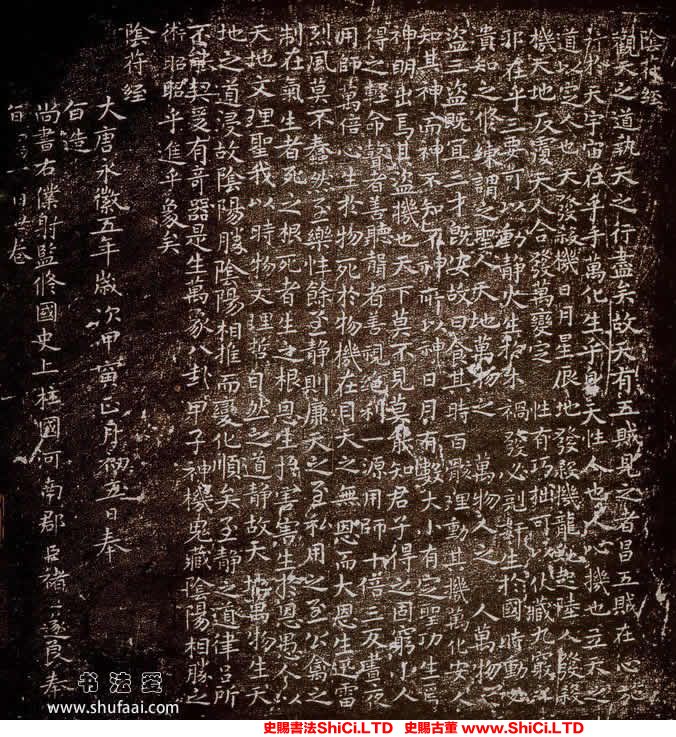 陰符經
觀天之道執天之行盡矣故天有五賊見之者昌五賊在心
行於天宇宙在乎手萬化生乎身天性人也人心機也立天之
道以定人也天發殺機日月星辰地發殺機龍蛇起陸人發殺
機天地反覆天人合發萬變定 性有巧拙可以伏藏九竅
邪在乎三要可以動靜火生於木禍發必剋姧生於國時動必
知之修練謂之聖人天地萬物之 萬物人之 人萬物
盜三盜既宜三才既安故曰食其時百骸理動其機萬化安人
知其神而神不知不神所以神日月有數大小有定聖功生焉
神明出焉其盜機也天下莫不見莫能知君子得之固窮小人
得之輕命瞽者善聽聾者善視絕利一源用師十倍三反晝夜
用師萬倍心生於物死於物機在目天之無恩而大恩生迅雷
烈風莫不蠢然至樂性餘至靜則廉天之至私用之至公禽之
制在氣生者死之根死者生之根恩生於害害生於恩愚人以
天地文理聖我以時物文理哲自然之道靜故天地萬物生天
地之道浸故陰陽勝陰陽相推而變化順矣至靜之道律呂所
不能契爰有奇器是生萬象八卦甲子神機鬼藏陰陽相勝之
術昭昭乎進乎象矣
陰符經
大唐永徽五年歲次甲寅正月初五日奉
旨造
尚書右僕射監修國史上柱國河南郡 臣褚遂良奉
旨
書法愛
www.shufaai.com
史賜書法ShiCi.LTD 史賜古董 www.ShiCi.LTD